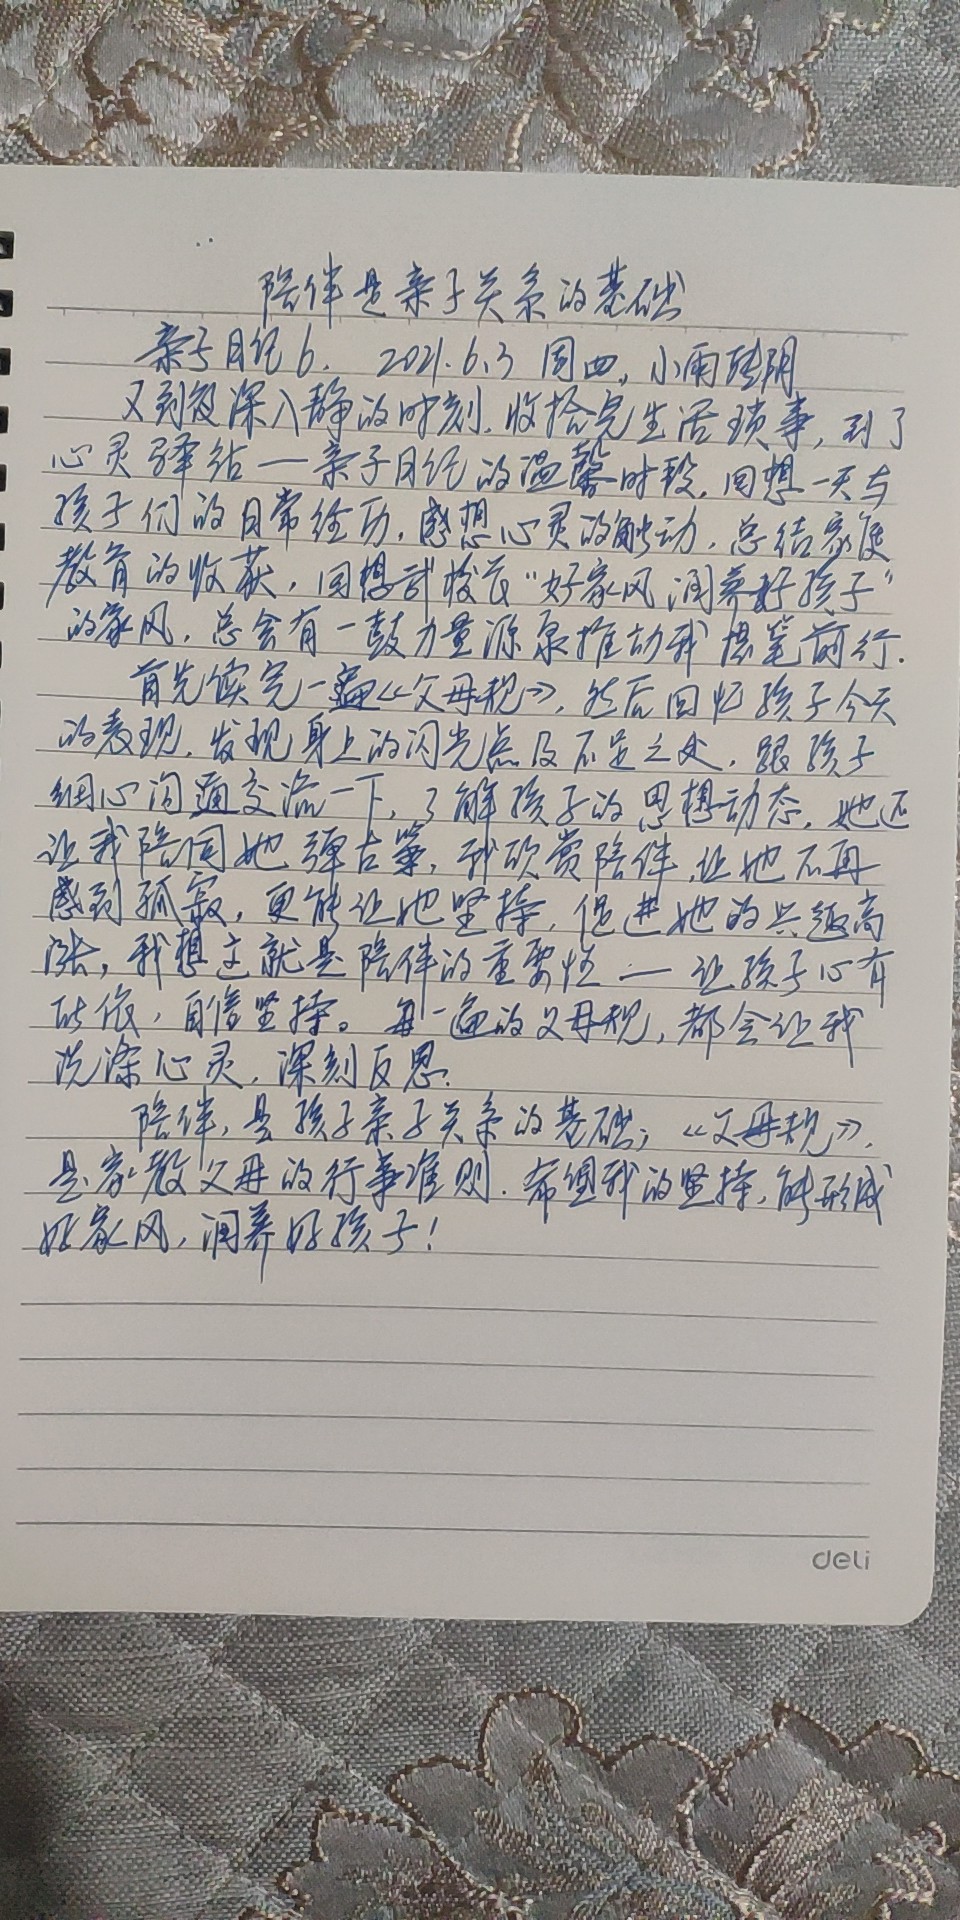 陪伴是亲子关系的基础
亲子日记6. 2021.6.3 周四,小雨转阴
又到夜深入静的时刻.收拾完生活琐事,到了
心灵驿站—亲子日记的温馨时段.回想一天与
孩子们的日常经历,感想心灵的触动.总结家庭
教育的收获,回想武校长“好家风润养好孩子”
的家风,总会有一鼓力量源泉推动我提笔前行.
首先读完一遍《父母规》,然后回忆孩子今天
的表现,发现身上的闪光点及不足之处,跟孩子
细心沟通交流一下,了解孩子的思想动态,她还
让我陪同她弹古筝,我欣赏陪伴,让她不再
感到孤寂,更能让她坚持,促进她的兴趣高
涨,我想这就是陪伴的重要性—让孩子心有
所依,自信坚持。每一遍的父母规,都会让我
洗涤心灵,深刻反思.
陪伴,是孩子亲子关系的基础;《父母规》,
是家教父母的行事准则.希望我的坚持,能形成
好家风,润养好孩子!
deli